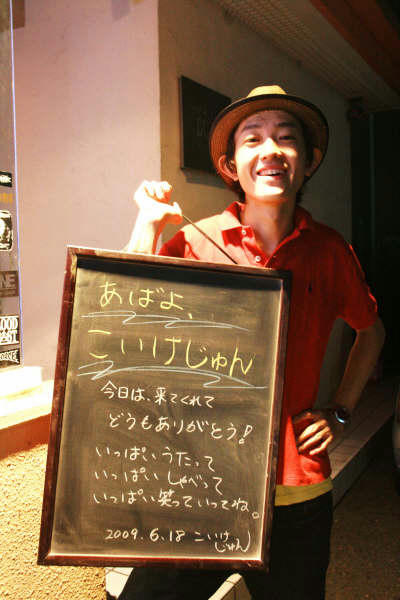 あばよ、
こいけじゅん
今日は、来てくれて
どうもありがとう!
いっぱいうたって
いっぱいしゃべって
いっぱい笑っていってね。
2009.6.18 こいけ
じゅん